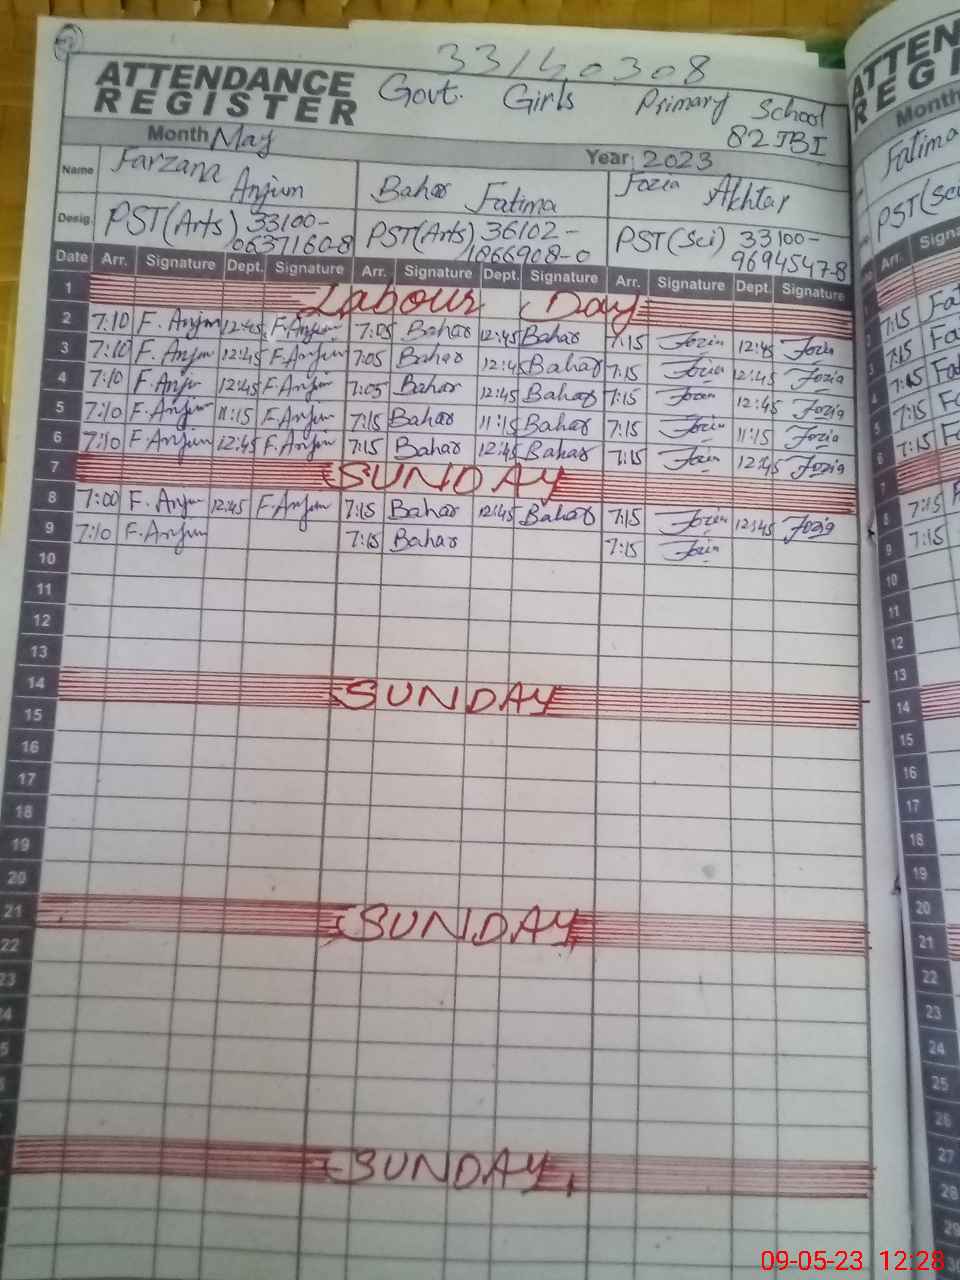 33140308
ATTENDANCE REGISTER Govt. Girls Primary School
82 JBI
Month May Year: 2023
Name Farzana Anjum Bahar Fatima Fozia Akhtar
Desig. PST(Arts) 33100-0637160-8 PST(Arts) 36102-1866908-0 PST(Sci) 33100-9694547-8
Date Arr. Signature Dept. Signature Arr. Signature Dept. Signature Arr. Signature Dept. Signature
1 Labour Day
2 7:10 F. Anjum 12:45 F. Anjum 7:05 Bahar 12:45 Bahar 7:15 Fozia 12:45 Fozia
3 7:10 F. Anjum 12:45 F. Anjum 7:05 Bahar 12:45 Bahar 7:15 Fozia 12:45 Fozia
4 7:10 F. Anjum 12:45 F. Anjum 7:05 Bahar 12:45 Bahar 7:15 Fozia 12:45 Fozia
5 7:10 F. Anjum 11:15 F. Anjum 7:15 Bahar 11:15 Bahar 7:15 Fozia 11:15 Fozia
6 7:10 F. Anjum 12:45 F. Anjum 7:15 Bahar 12:45 Bahar 7:15 Fozia 12:45 Fozia
7 SUNDAY
8 7:00 F. Anjum 12:45 F. Anjum 7:15 Bahar 12:45 Bahar 7:15 Fozia 12:45 Fozia
9 7:10 F. Anjum 7:15 Bahar 7:15 Fozia
10
11
12
13
14 SUNDAY
15
16
17
18
19
20
21 SUNDAY
22
23
SUNDAY
ATTEN
REGI
Month
Fatima
PST(Sci
Signa
7:15 Fat
7:15 Fa
7:15 Fa
7:15 Fa
7:15 Fa
7
8 7:15
9 7:15
10
11
12
13
14
15
16
17
18
19
20
21
22
23
24
25
26
27
28
29
09-05-23 12:28